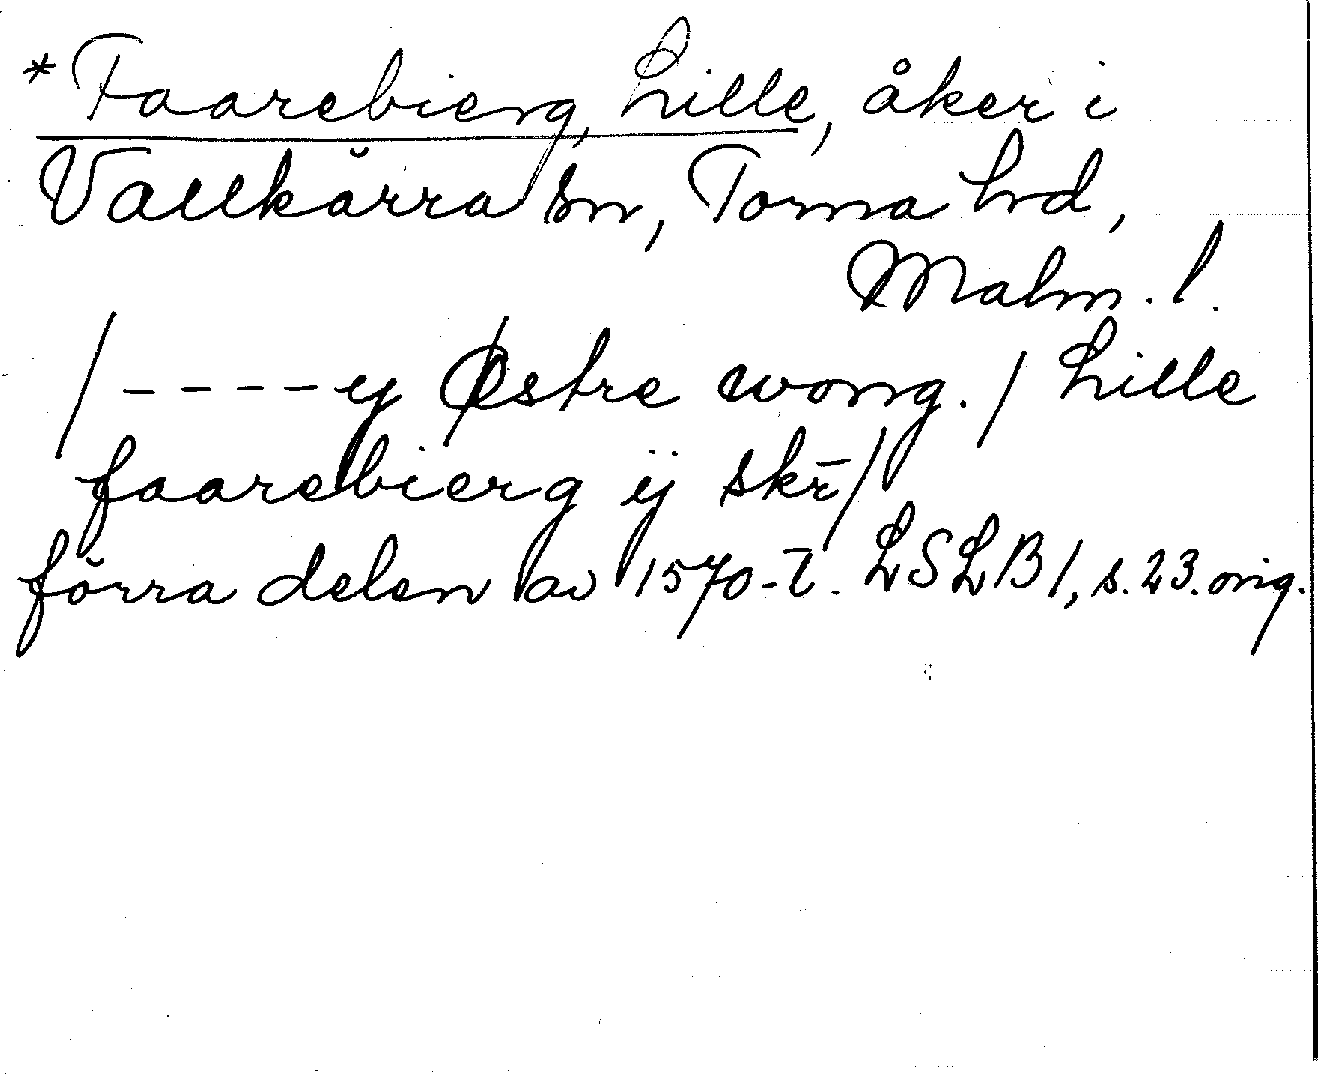 *Faarebierg, Lille, åker i
Vallkärra sn, Torna hd,
Malm. l.
/ - - - - y Østre wong. / Lille
faarebierg ij skr̄ /
förra delen av 1570-t. LSLB 1, s. 23. orig.